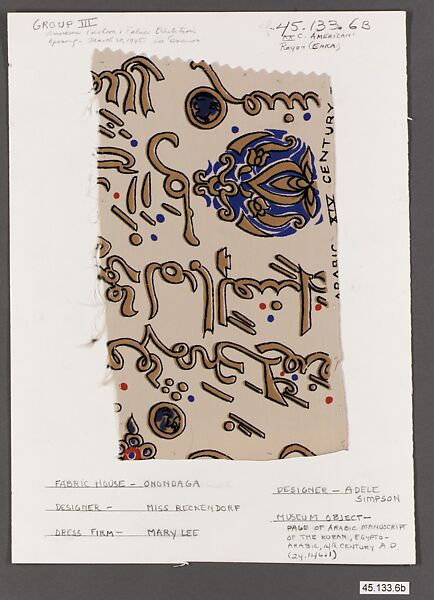 GROUP III
American Fashions & Fabrics Exhibition
Opening - March 10, 1945 San Francisco
45.133.6B
XX C. AMERICAN
RAYON (ENKA)
ARABIC XIV CENTURY
FABRIC HOUSE - ONONDAGA
DESIGNER - MISS RECKENDORF
DRESS FIRM - MARY LEE
DESIGNER - ADELE
SIMPSON
MUSEUM OBJECT -
PAGE OF ARABIC MANUSCRIPT
OF THE KORAN, EGYPTO-
ARABIC, 14TH CENTURY A D
(24.146.1)
45.133.6b